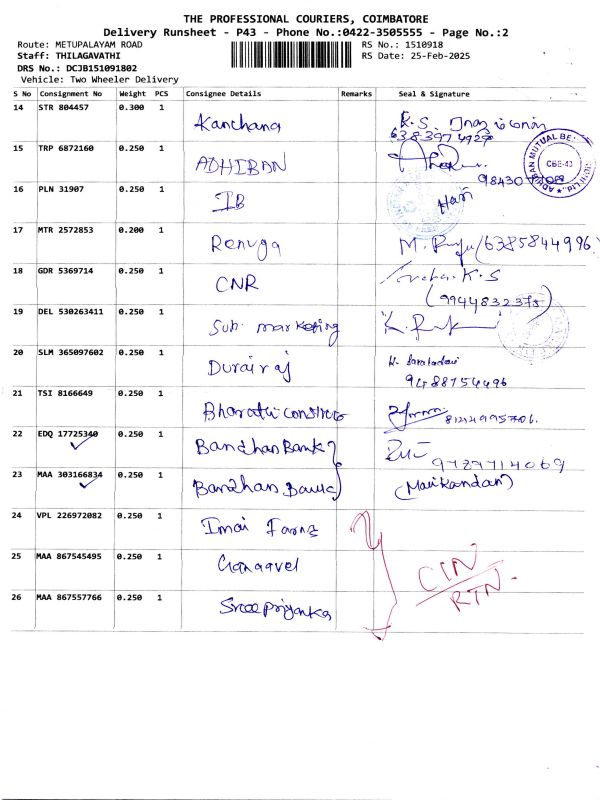 THE PROFESSIONAL COURIERS, COIMBATORE
Delivery Runsheet - P43 - Phone No.:0422-3505555 - Page No.:2
Route: METUPALAYAM ROAD RS No.: 1510918
Staff: THILAGAVATHI RS Date: 25-Feb-2025
DRS No.: DCJB151091802
Vehicle: Two Wheeler Delivery
S No Consignment No Weight PCS Consignee Details Remarks Seal & Signature
14 STR 804457 0.300 1 Kanchana K.S.
6383974929
15 TRP 6872160 0.250 1 ADHIBAN
98430
CBE-43
16 PLN 31907 0.250 1 IB Hari
17 MTR 2572853 0.200 1 Renuga M. (6385844996
18 GDR 5369714 0.250 1 CNR K.S
(9944832375)
19 DEL 530263411 0.250 1 Sub. marketing K.
20 SLM 365097602 0.250 1 Durairaj
9488754496
21 TSI 8166649 0.250 1 Bharathi
22 EDQ 17725340 0.250 1 Bandhan Bank
9787714069
23 MAA 303166834 0.250 1 Bandhan Bank (Manikandan)
24 VPL 226972082 0.250 1 Imai Farnz
25 MAA 867545495 0.250 1 Ganaavel CIN
RTN.
26 MAA 867557766 0.250 1 Sreepriyanka